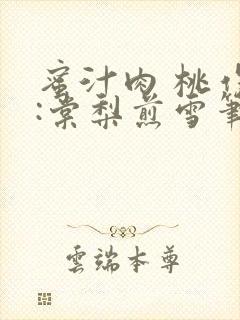 蜜汁肉桃作
:棠梨煎雪筆
雲端本尊